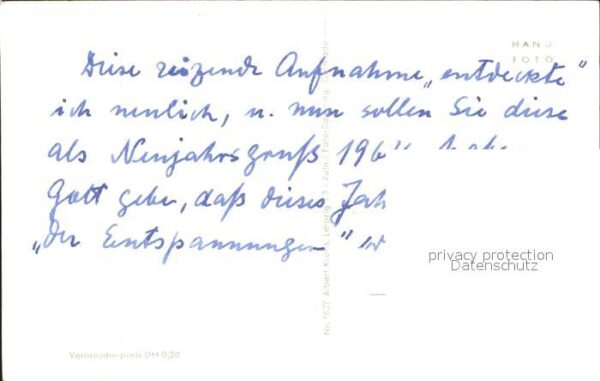 HAND
FOTO
Diese reizende Aufnahme „entdeckte"
ich neulich, u. nun sollen Sie diese
als Neujahrsgruß 196
Gott gebe, daß dieses Jah
„der Entspannungen"
privacy protection
Datenschutz
Verbraucherpreis DM 0,20
Nr. 1837 Albert Kruss, Leipzig